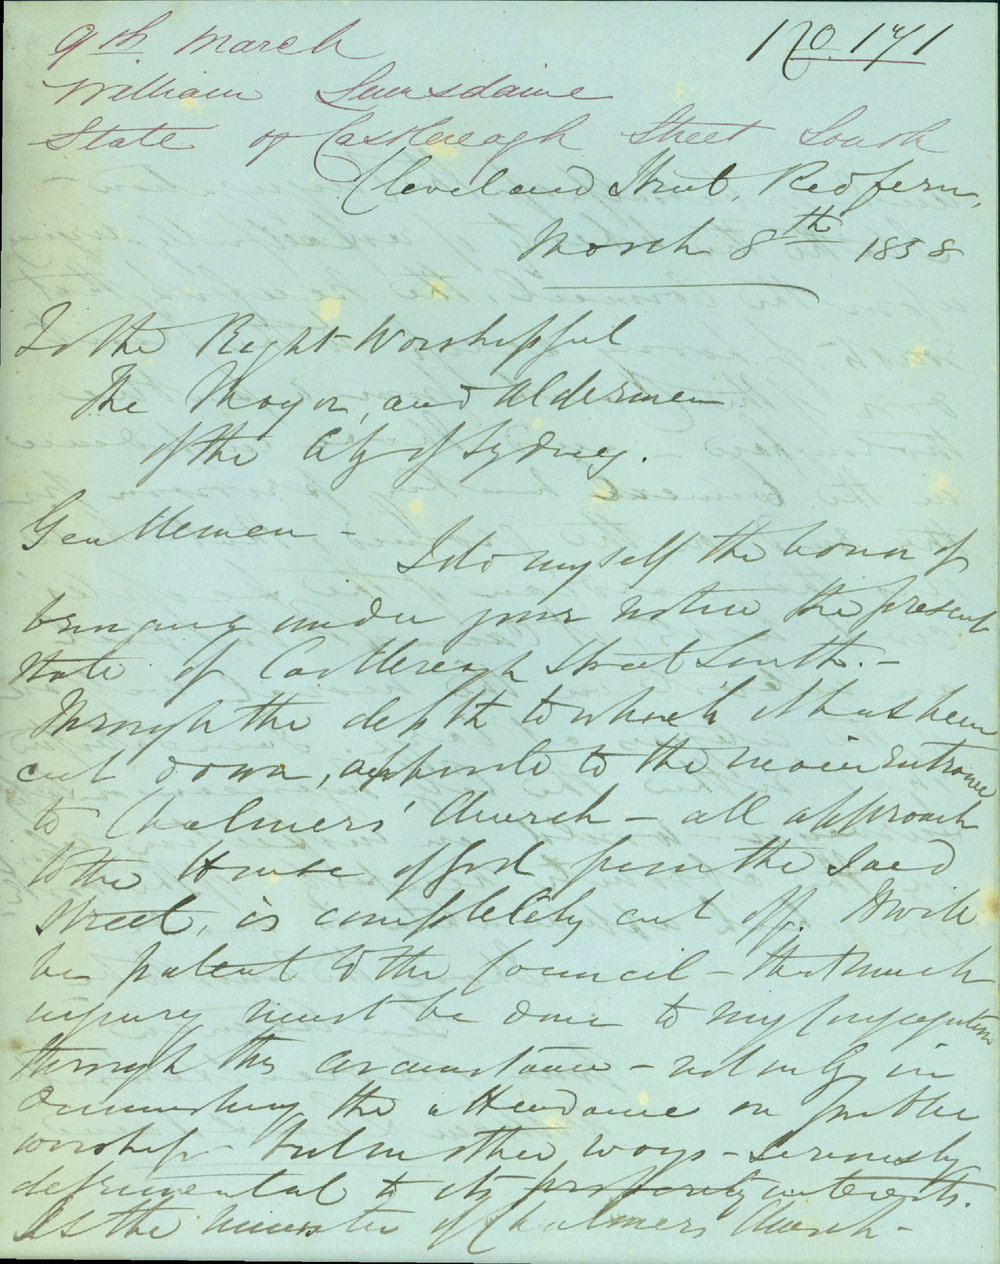 9th March
No. 171
William
State of Castlereagh Street South
Cleveland Street, Redfern,
March 8th 1858
To the Right Worshipful
The Mayor, and Aldermen
of the City of Sydney.
Gentlemen -
I do myself the honor of
bringing under your notice the present
state of Castlereagh Street South. -
Through the depth to which it has been
cut down, opposite to the main entrance
to Chalmers' Church - all approach
to the House of God from the said
street, is completely cut off. It will
be patent to the Council - that much
injury must be done to my Congregation
through this circumstance - not only in
diminishing the attendance on public
worship - but in other ways - seriously
detrimental to its property interests.
As the Minister of Chalmers Church -